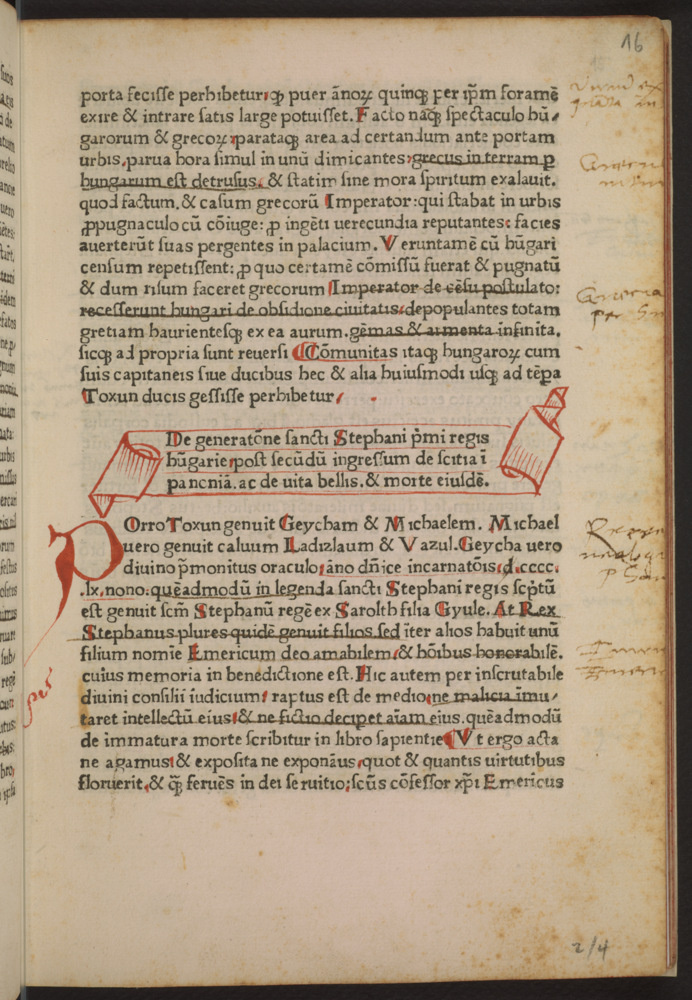 16
porta fecisse perhibetur: qꝫ puer ānoꝝ quinqꝫ per ip̄m foramē
exire & intrare satis large potuisset. Facto nāqꝫ spectaculo hū⸗
garorum & grecoꝝ: parataqꝫ area ad certandum ante portam
urbis. parua hora simul in unū dimicantes: grecus in terram ꝑ
hungarum est detrusus. & statim sine mora spiritum exalauit.
quod factum. & casum grecorū Imperator: qui stabat in urbis
ꝓpugnaculo cū cōiuge: ꝓ ingēti uerecundia reputantes: facies
auerterūt suas pergentes in palacium. Veruntamē cū hūgari
censum repetissent: ꝓ quo certamē cōmissū fuerat & pugnatū
& dum risum faceret grecorum Imperator de cēsu postulato:
recesserunt hungari de obsidione ciuitatis: depopulantes totam
gretiam haurientesqꝫ ex ea aurum. gēmas & armenta infinita.
sicqꝫ ad propria sunt reuersi Cōmunitas itaqꝫ hungaroꝝ cum
suis capitaneis siue ducibus hec & alia huiusmodi usqꝫ ad tēpa
Toxun ducis gessisse perhibetur.
De generatōne sancti Stephani pͥmi regis
hūgarie: post secūdū ingressum de scitia ī
panoniā. ac de uita bellis. & morte eiusdē.
POrro Toxun genuit Geycham & Michaelem. Michael
uero genuit caluum Ladizlaum & Vazul. Geycha uero
diuino pͥmonitus oraculo: āno dn̄ice incarnatōis: d. cccc.
.lx. nono: quēadmodū in legenda sancti Stephani regis scp̄tū
est genuit scm̄ Stephanū regē ex Sarolth filia Gyule. At Rex
Stephanus plures quidē genuit filios sed iter alios habuit unū
filium nomīe Emericum deo amabilem: & hōibus honorabilē.
cuius memoria in benedictione est. Hic autem per inscrutabile
diuini consilii iudicium: raptus est de medio: ne malicia īmu⸗
taret intellectū eius: & ne fictio decipet aīam eius. quēadmodū
de immatura morte scribitur in libro sapientie Vt ergo acta
ne agamus: & exposita ne exponāus: quot & quantis uirtutibus
floruerit. & qͣꝫ feruēs in dei seruitio: scūs cōfessor xp̄i Emericus
2/4